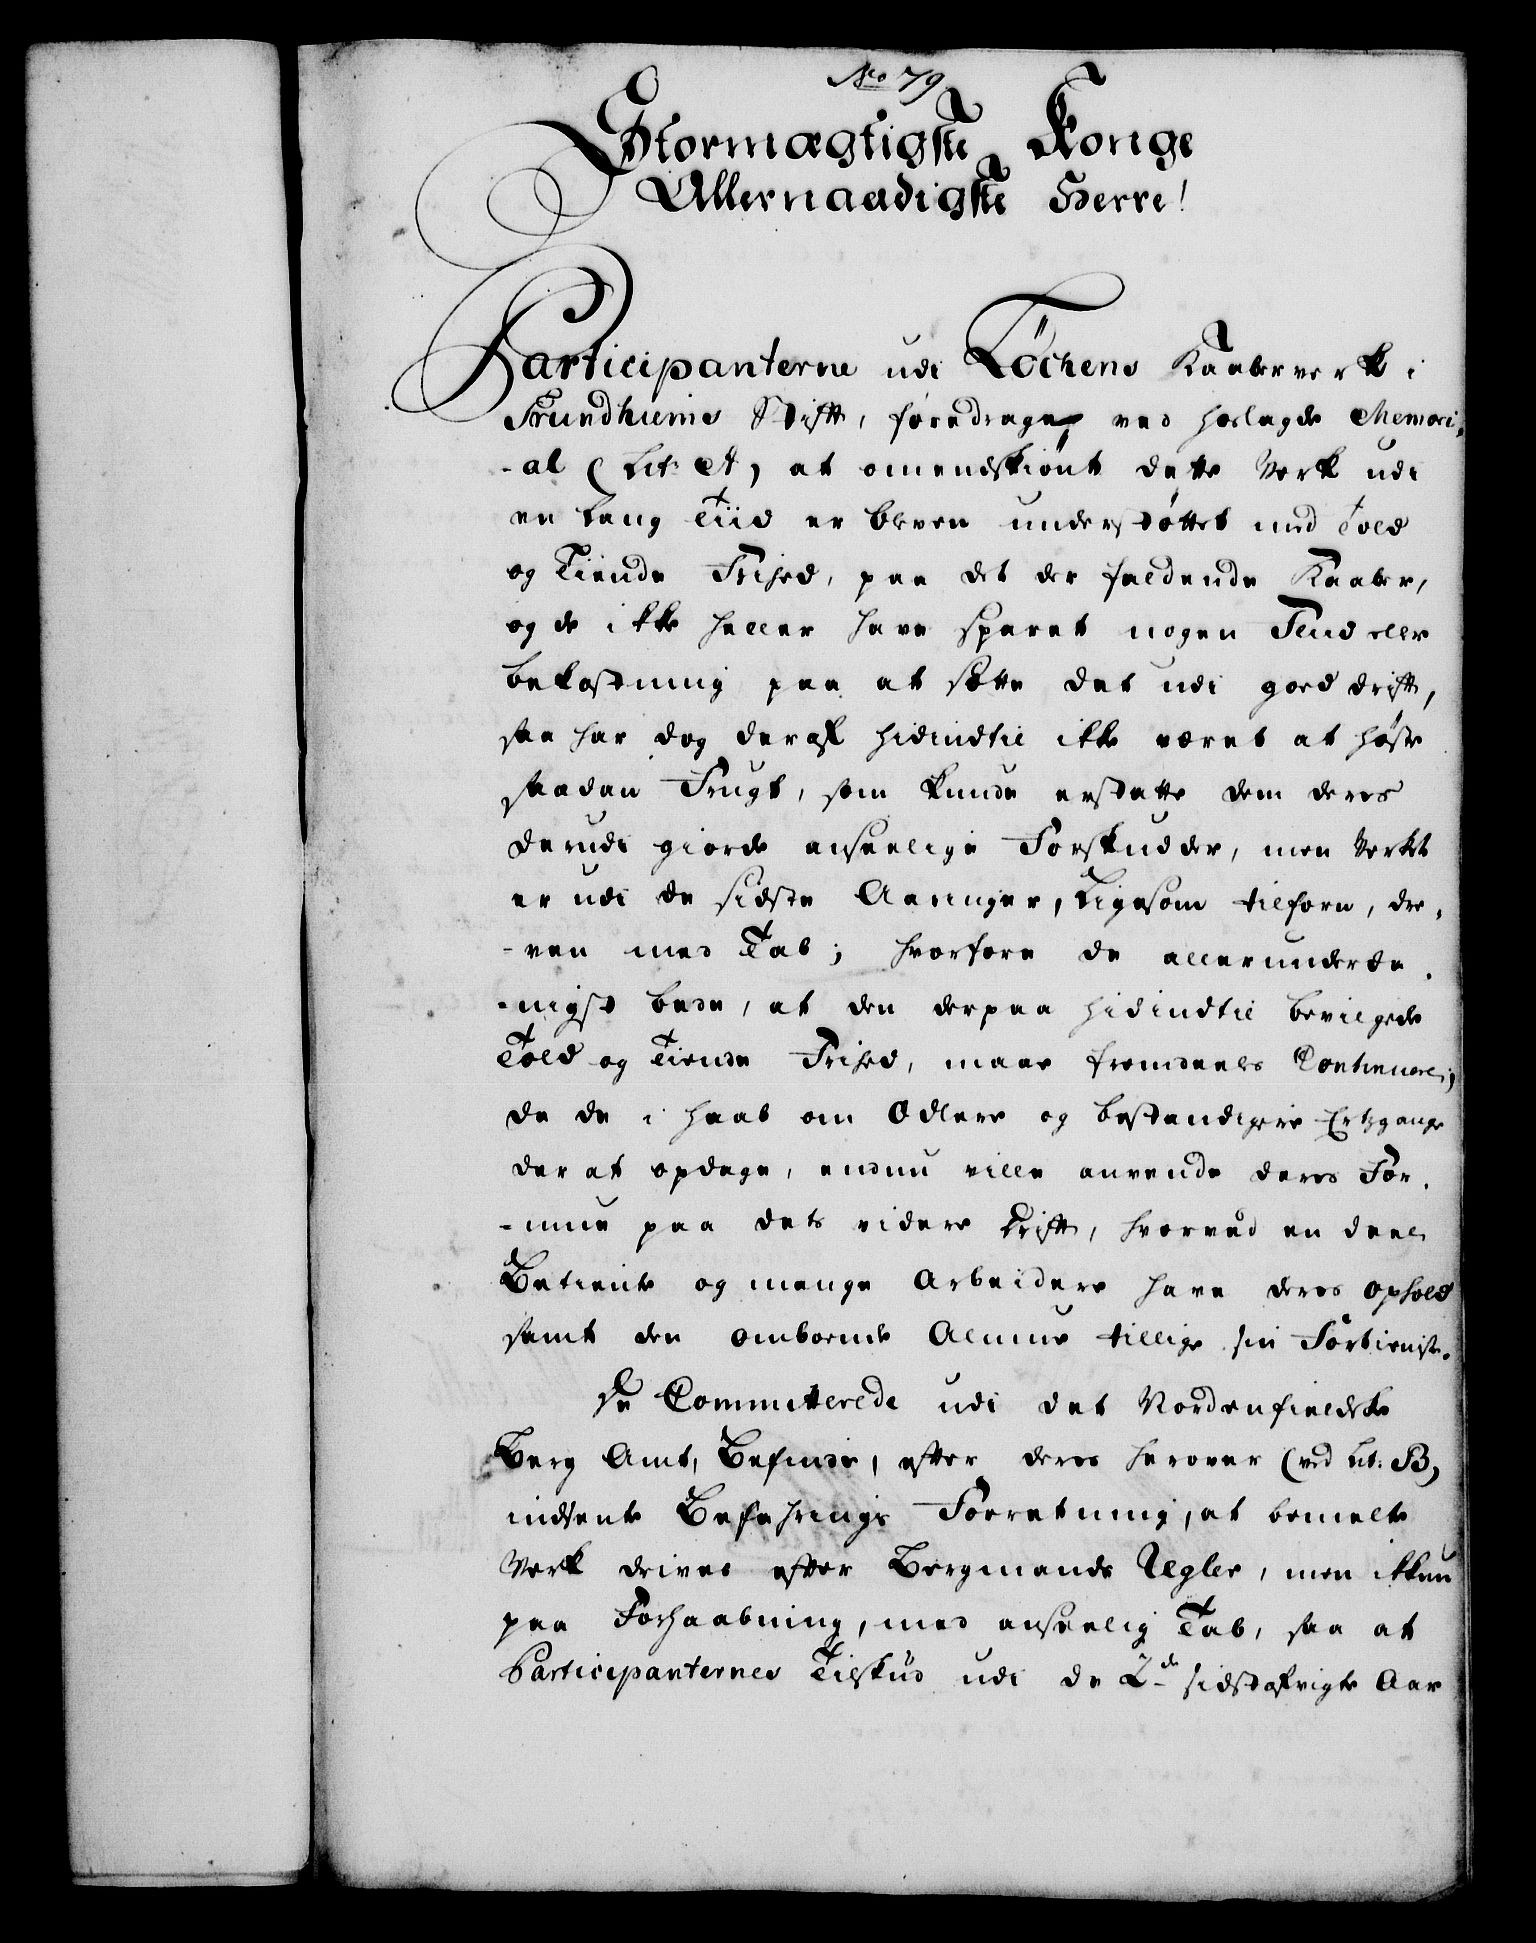 No 79
Stormægtigste Konge
Allernaadigste Herre!
Participanterne udi Løchens Kaaberverk i
Trundhiems Stift, foredrager ved hoslagde Memori-
-al (Lit: A) at omendskiønt dette Verk udi
en lang Tiid er bleven understøttet med Told
og Tiende Frihed, paa det der faldende Kaaber,
og de ikke heller have sparet nogen Fliid eller
bekostning paa at sette det udi goed drift,
saa har dog deraf hidindtil ikke været at høste
saadan Frugt, som kunde erstatte dem deres
derudi giorde anseelige Forskudder, men Verket
er udi de sidste Aaringer, ligesom tilforn, dre-
-ven med Tab; hvorfore de allerunderda-
-nigst bede, at den derpaa hidindtil bevilgede
Told og Tiende Frihed, maae fremdeeles Continuere;
da de i haab om Ædlere og bestandigere Ertzgange
der at opdage, endnu ville anvende deres For-
-mue paa dets videre Drift, hvorved en deel
Betiente og mange Arbeidere have deres ophold
samt den omboende Almue tillige sin Fortieniste.
De Committerede udi det Nordenfieldske
Berg Amt, Befinde, efter deres herover (ved Lit: B,
indsente Befahrings Forretning, at bemelte
Verk drives efter Bergmands Regler, men ikkun
paa Forhaabning, med anseelig Tab, saa at
Participanternes Tilskud udi de 2de sidstafvigte Aar